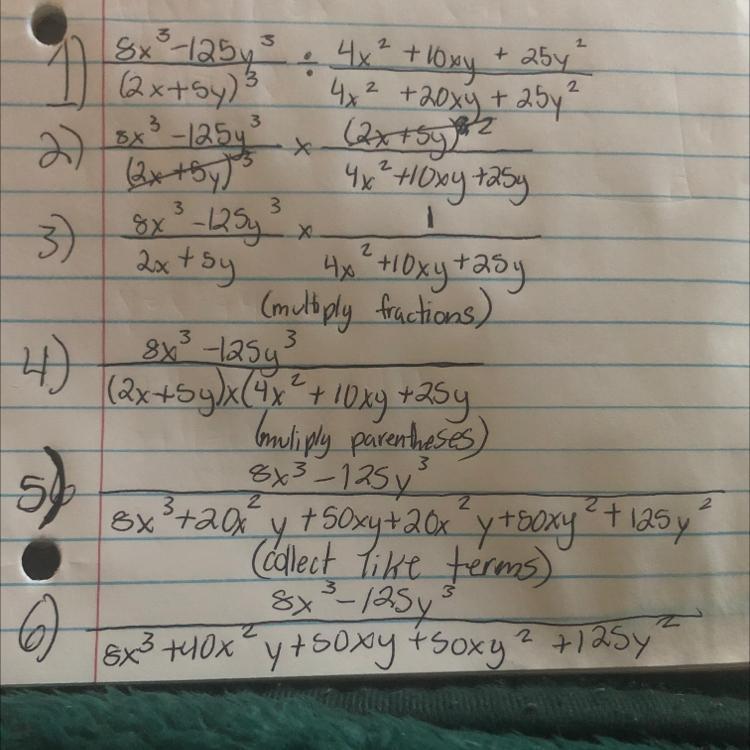 1) 8x³-125y³ / (2x+5y)³ ÷ 4x²+10xy+25y² / 4x²+20xy+25y²
2) 8x³-125y³ / (2x+5y)³ × (2x+5y)² / 4x²+10xy+25y
3) 8x³-125y³ / 2x+5y × 1 / 4x²+10xy+25y
(multiply fractions)
4) 8x³-125y³ / (2x+5y)x(4x²+10xy+25y
(muliply parentheses)
5) 8x³-125y³ / 8x³+20x²y+50xy+20x²y+50xy²+125y²
(collect like terms)
6) 8x³-125y³ / 8x³+40x²y+50xy+50xy²+125y²